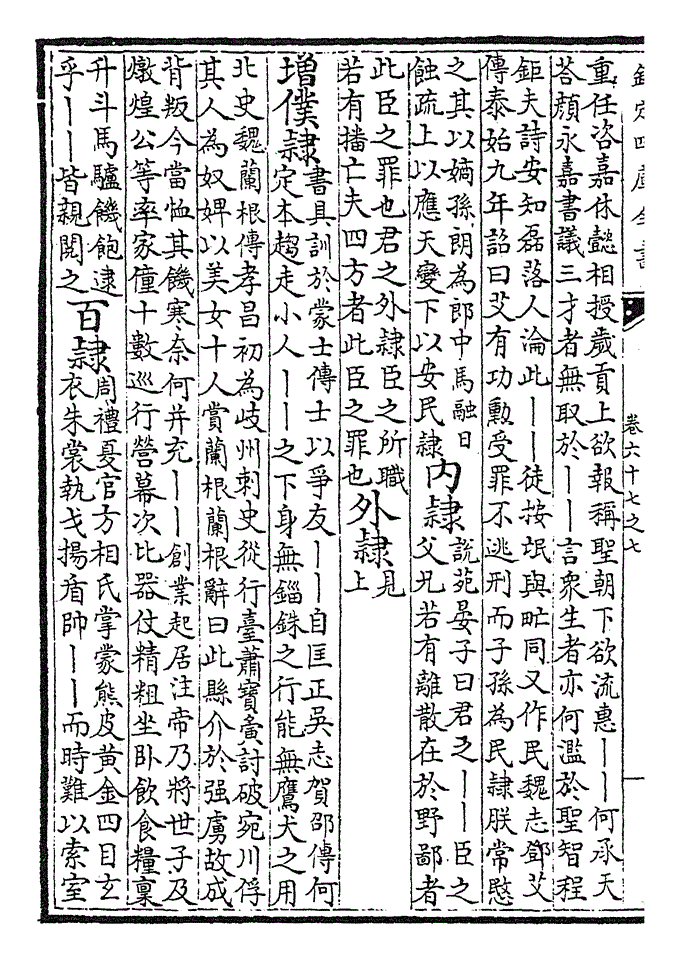 欽定四庫全書
卷六十七之七
重任咨嘉休懿相授歲貢上欲報稱聖朝下欲流惠｜｜何承天
荅顔永嘉書議三才者無取於｜｜言衆生者亦何濫於聖智程
鉅夫詩安知磊落人淪此｜｜徒按氓與甿同又作民魏志鄧艾
傳泰始九年詔曰艾有功勲受罪不逃刑而子孫為民隸朕常愍
之其以嫡孫朗為郎中馬融曰
蝕疏上以應天變下以安民隸
内隸
説苑晏子曰君之｜｜臣之
父兄若有離散在於野鄙者
此臣之罪也君之外隸臣之所職
若有播亡夫四方者此臣之罪也
外隸
見
上
增僕隸
書具訓於蒙士傳士以爭友｜｜自匡正吳志賀邵傳何
定本趨走小人｜｜之下身無錙銖之行能無鷹犬之用
北史魏蘭根傳孝昌初為岐州刺史從行臺蕭寶夤討破宛川俘
其人為奴婢以美女十人賞蘭根蘭根辭曰此縣介於强虜故成
背叛今當恤其饑寒奈何并充｜｜創業起居注帝乃將世子及
燉煌公等率家僮十數巡行營幕次比器仗精粗坐卧飲食糧稟
升斗馬驢饑飽逮
乎｜｜皆親閲之
百隸
周禮夏官方相氏掌蒙熊皮黄金四目玄
衣朱裳執戈揚盾帥｜｜而時難以索室